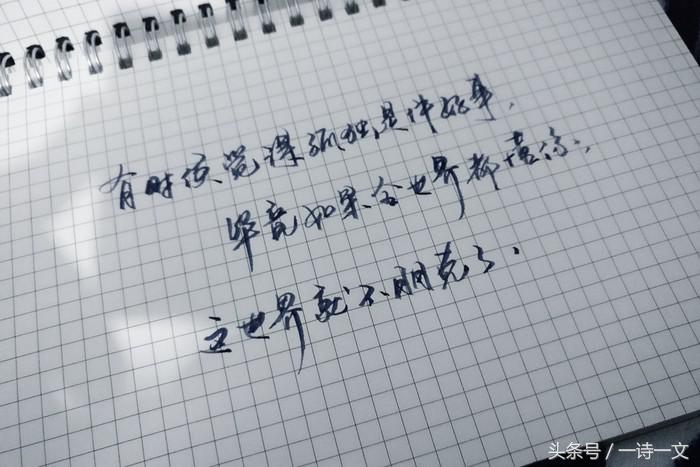 有时候觉得孤独是件好事,
毕竟如果全世界都懂你,
这世界就不朋克了.
头条号 / 一诗一文